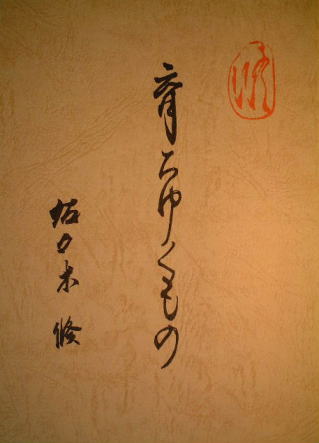 育ちゆくもの
佐々木 修